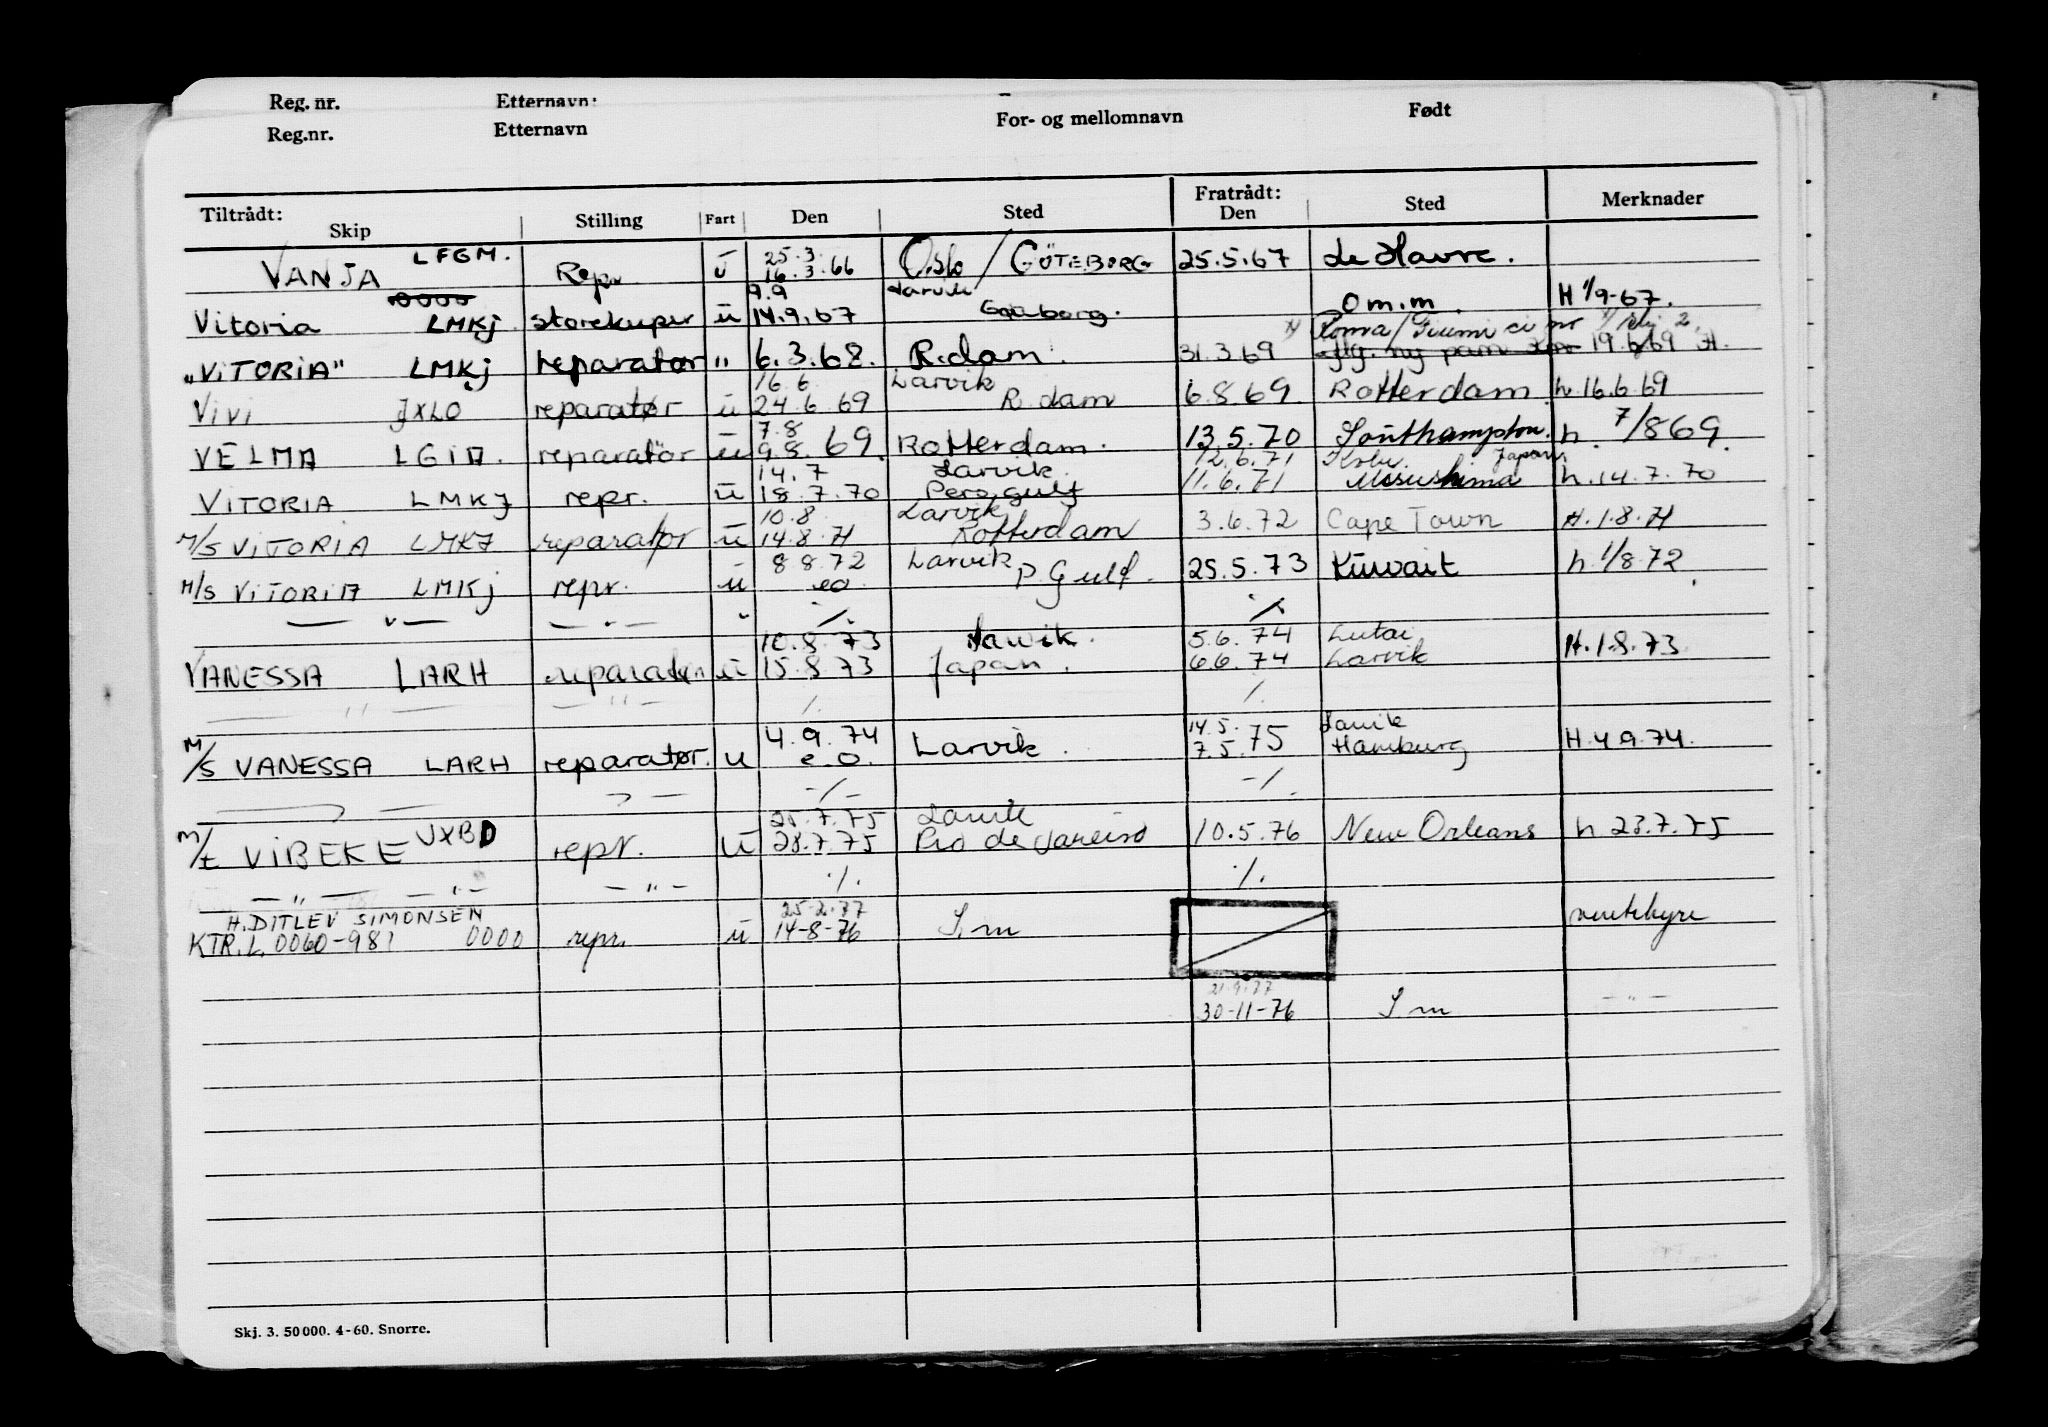 Reg. nr. Etternavn:
Reg.nr. Etternavn For- og mellomnavn Født
Tiltrådt: Fratrådt:
Skip Stilling Fart Den Sted Den Sted Merknader
25.3
VANJA LFGM. Repr ū 16.3.66 Oslo / GÖTEBORG 25.5.67 Le Havre.
9.9 Larvik
Vitoria LMKj storekuper ū 14.9.67 Omm. H 1/9-67.
Roma/Fiumi
"ViTORiA" LMKj reparatør " 6.3.68. R.dam. 31.3.69 19.6.69 H.
16.6. Larvik
Vivi JXLO reparatør ū 24.6.69 R.dam 6.8.69 Rotterdam h.16.6.69
7.8
VELMA LGiA. reparatør ū 9.8.69. Rotterdam. 13.5.70 Southampton. h. 7/869.
14.7 Larvik. 12.6.71 Japan.
ViTORiA LMKJ repr. ū 18.7.70 Pers.gulf 11.6.71 h.14.7.70
10.8 Larvik
M/S ViTORiA LMKJ reparatør ū 14.8.71 Rotterdam 3.6.72 Cape Town H.1.8.71
8 8.72 Larvik
M/S ViTORiA LMKj repr. ū eo P Gulf. 25.5.73 Kūwait h.1/8.72
— " — — " — " ./. ./.
10.8.73 Larvik. 5.6.74 Lutai
VANESSA LARH reparatør ū 15.8.73 Japan. 6.6.74 Larvik H.1.8.73
— " — — " — ./. ./.
4.9.74 14.5. Larvik
M/S VANESSA LARH reparatør. u e.o. Larvik. 7.5.75 Hamburg H.4.9.74.
-/- -/-
25.7.75 Larvik
M/t ViBEKE JXBD repr. ū 28.7.75 Rio de Janeiro 10.5.76 New Orleans h 23.7.75
— " — — " — — " — ./. ./.
H.DITLEV SIMONSEN 25-2.77
KTR.L.0060-981 0000 repr. ū 14-8-76 S.m ventehyre
21.9.77
30-11-76 S m — " —
Skj. 3. 50 000. 4-60. Snorre.